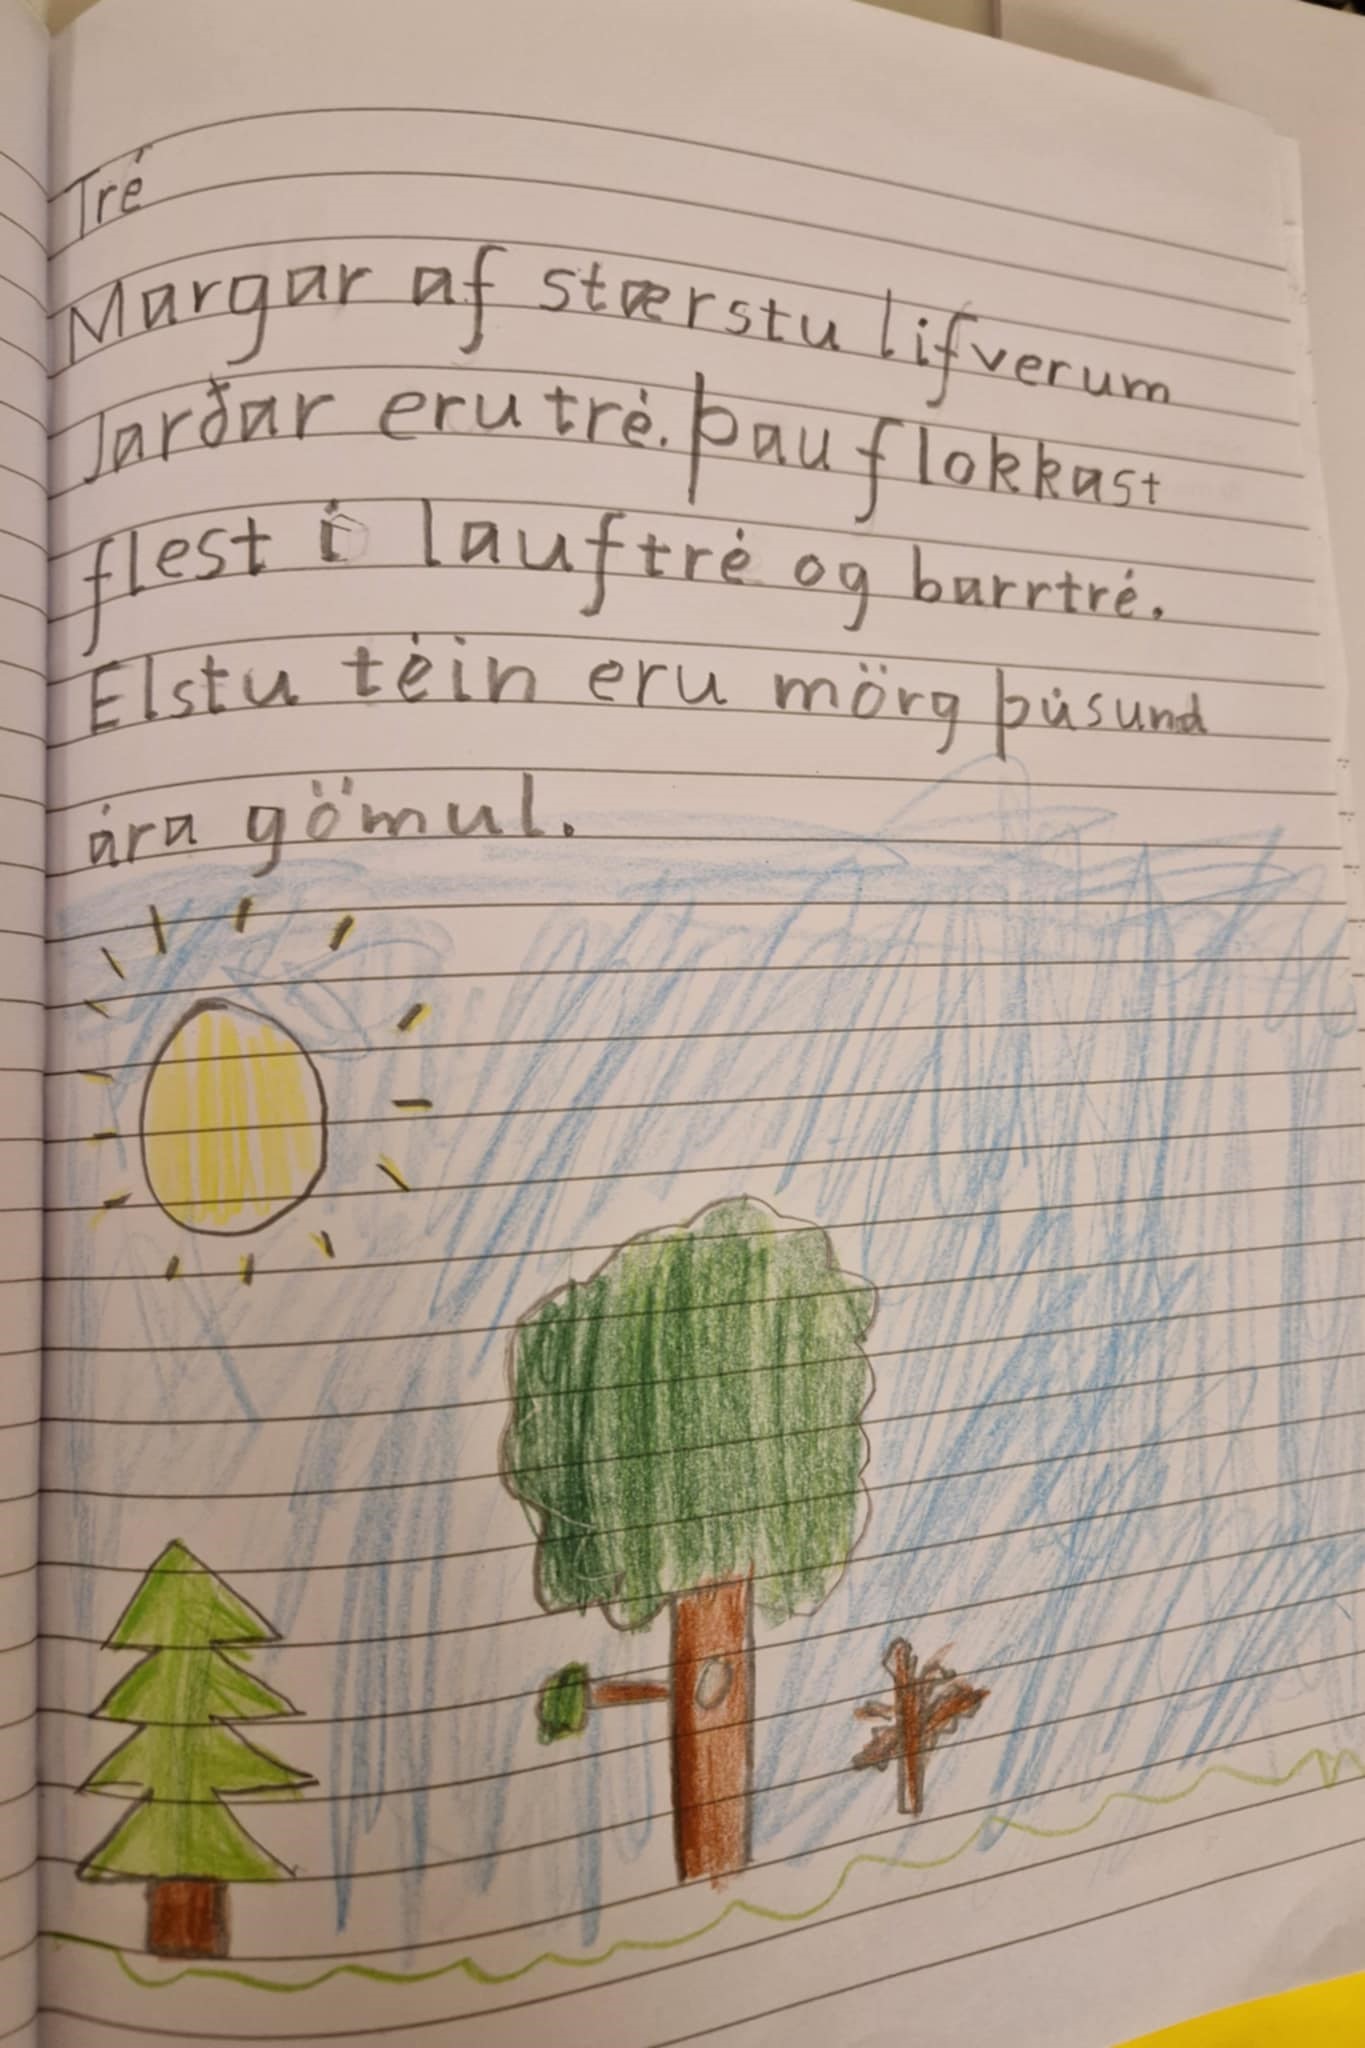 Tré
Margar af stærstu lifverum
Jarðar eru tré. Þau flokkast
flest í lauftré og barrtré.
Elstu téin eru mörg þúsund
ára gömul.